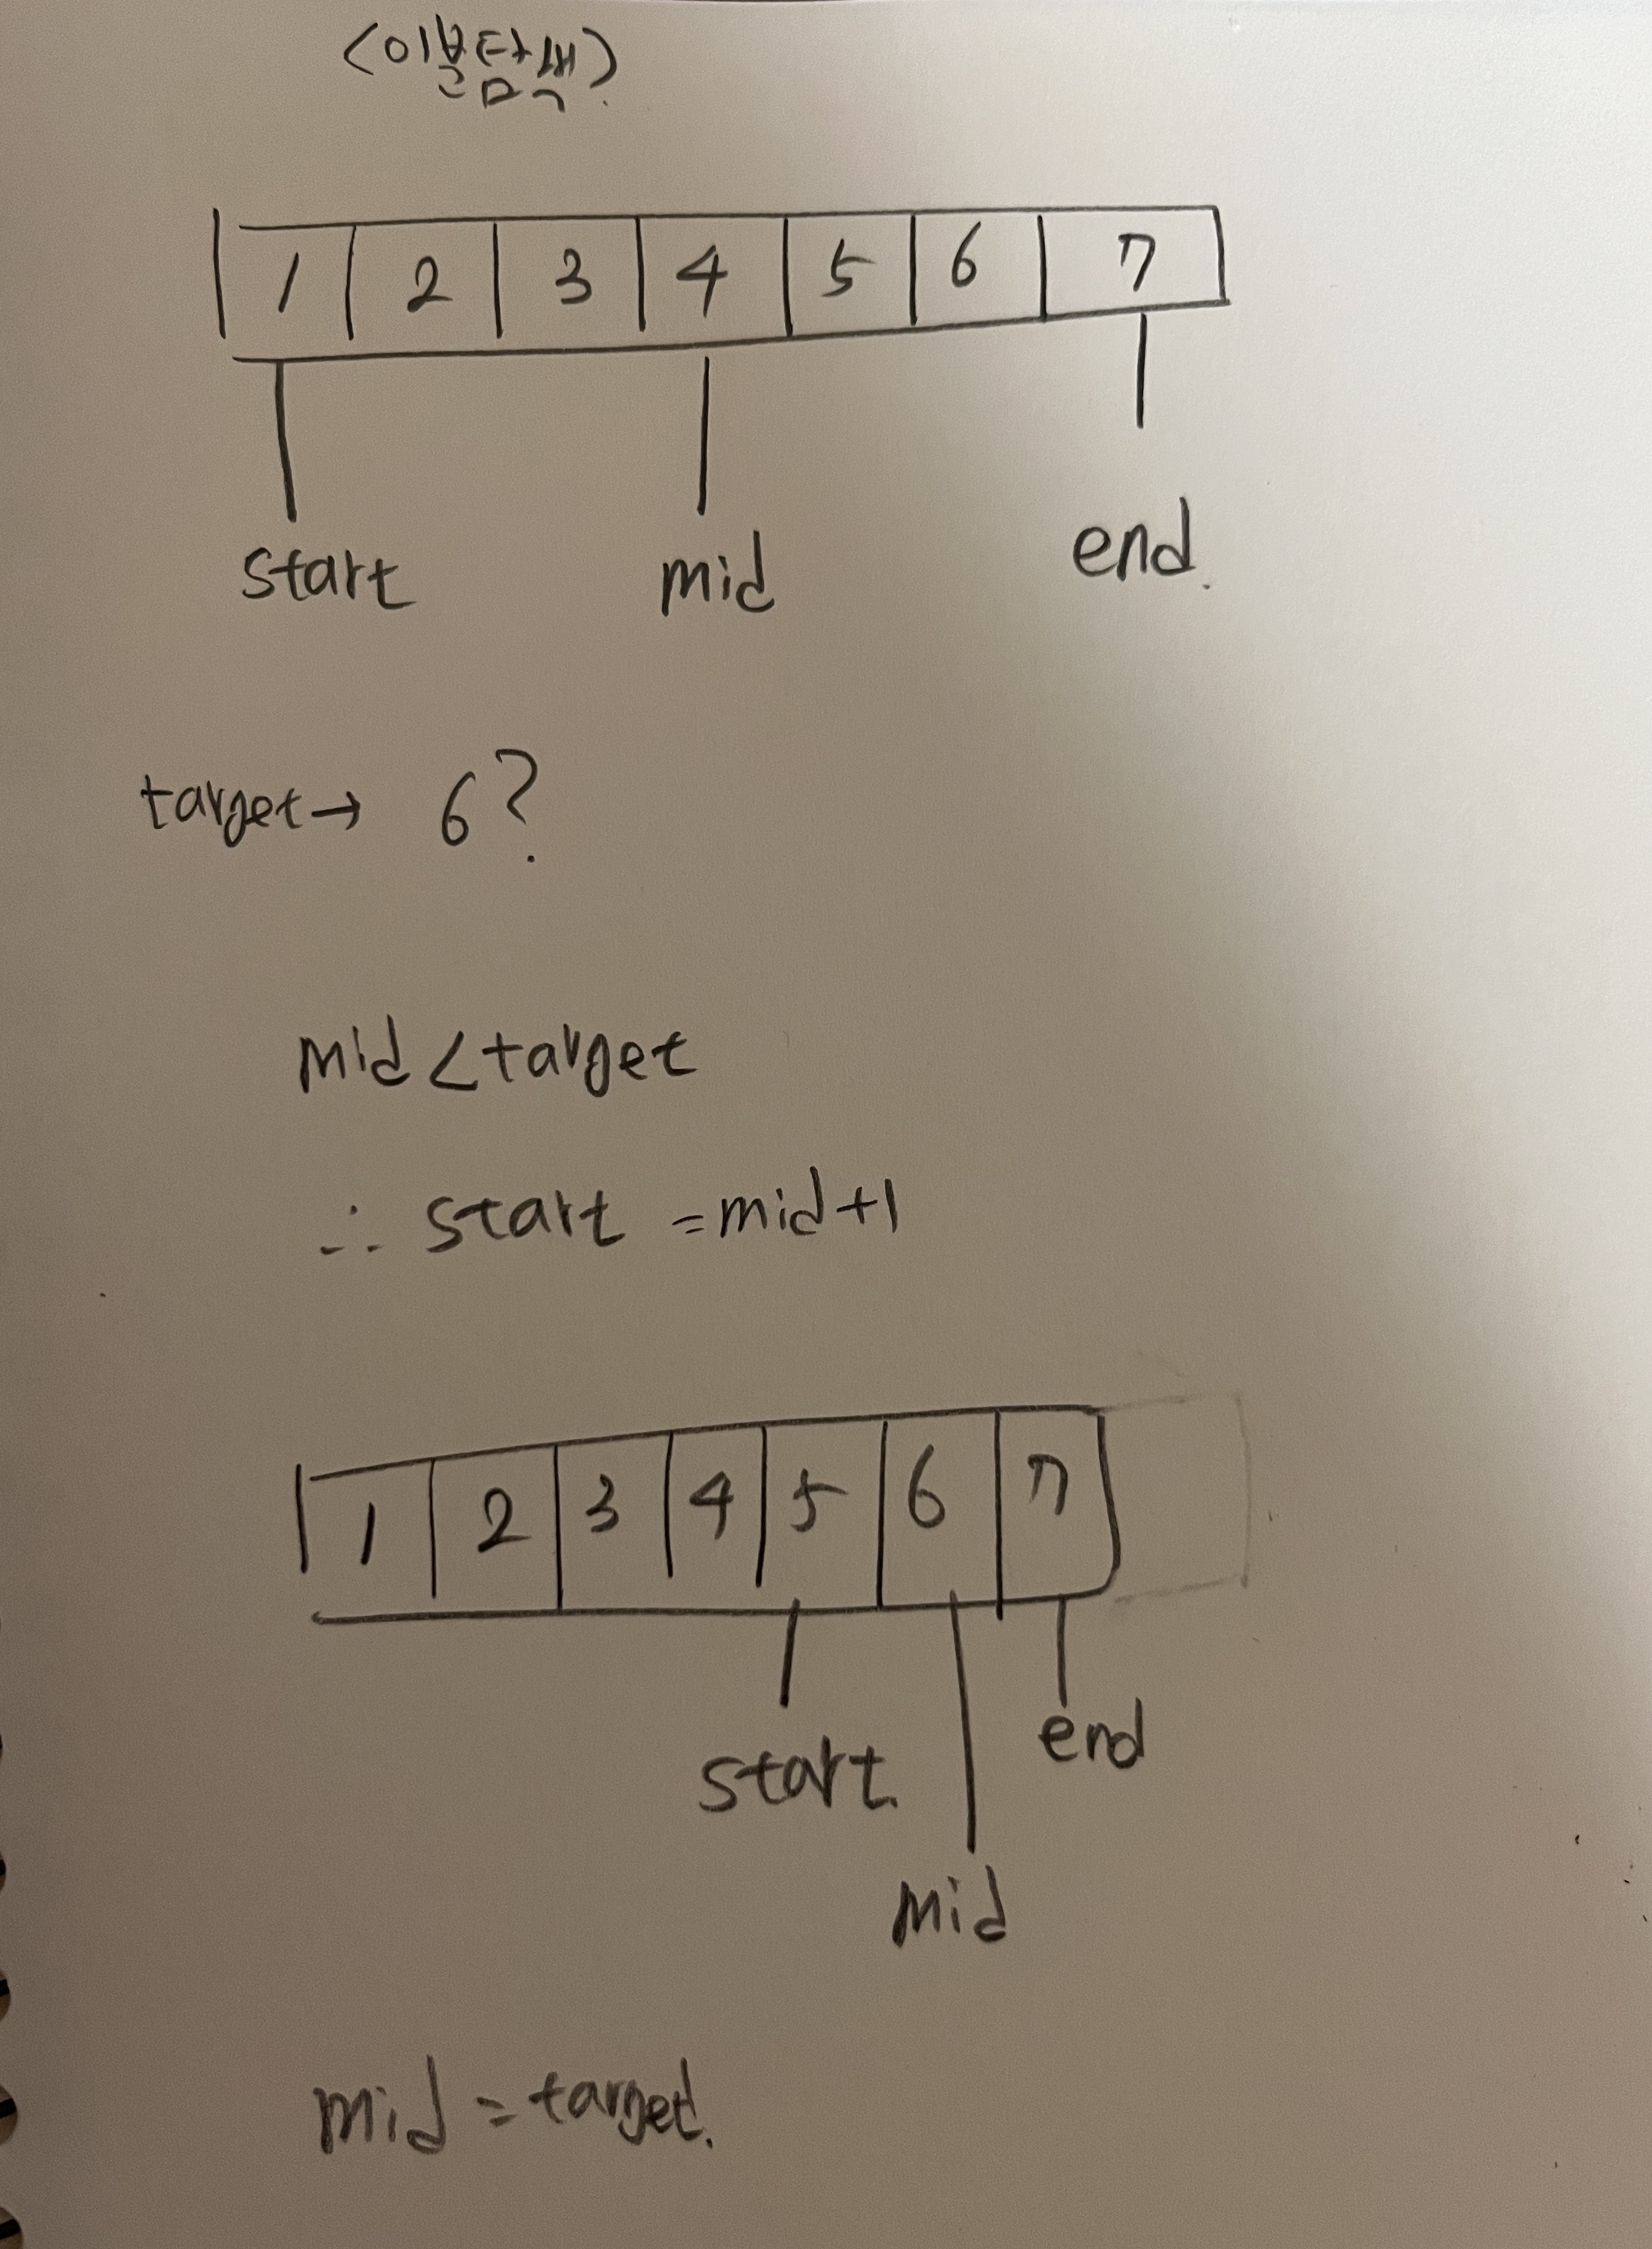 <이분탐색>
1 2 3 4 5 6 7
start mid end.
target→ 6?
mid<target
∴ start =mid+1
1 2 3 4 5 6 7
start. end
mid
mid=target.